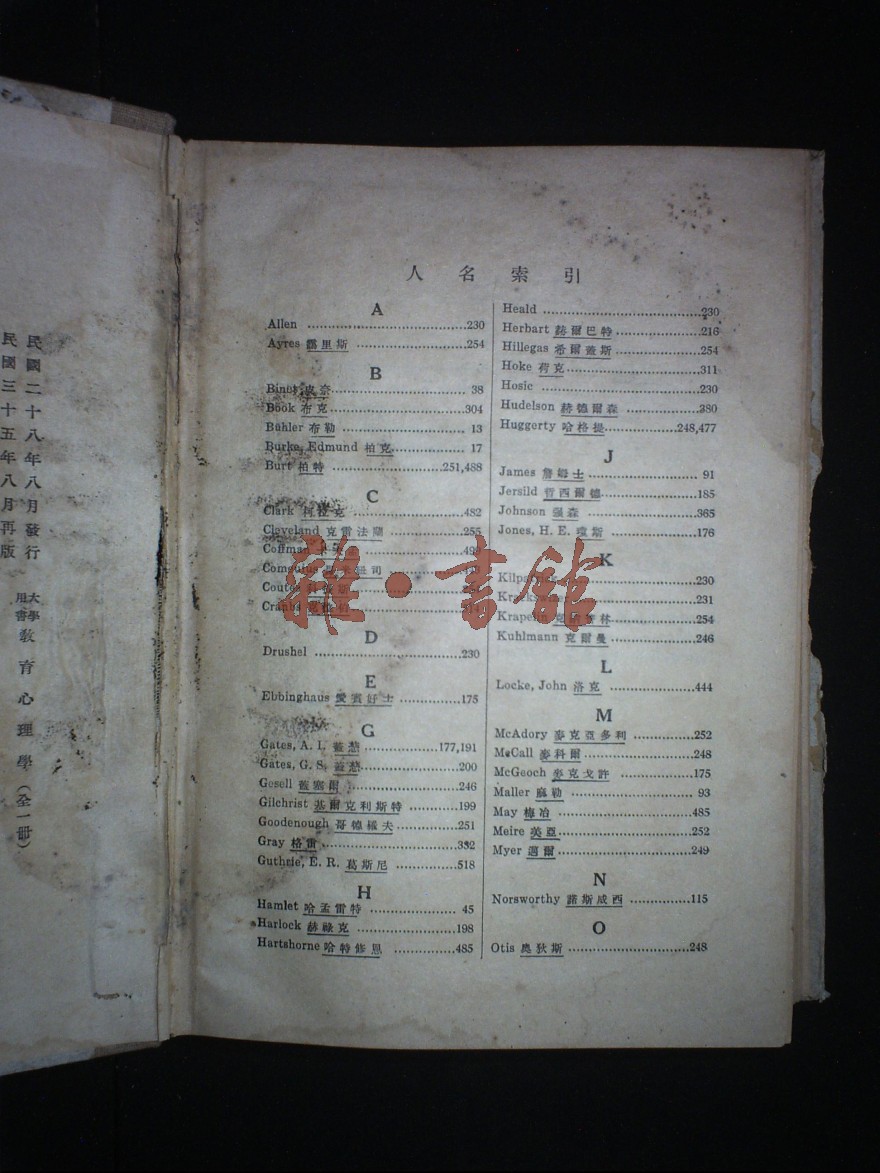 人名索引
A
Allen 230
Ayres 靄里斯 254
B
Binet 皮奈 38
Book 布克 304
Buhler 布勒 13
Burke, Edmund 柏克 17
Burt 柏特 251,488
C
Clark 482
Cleveland 克雷法蘭 255
Coffman
Comenius
D
Drushel 230
E
Ebbinghaus 愛賓好士 175
G
Gates, A. I. 蓋慈 177,191
Gates, G. S. 蓋慈 200
Gesell 蓋塞爾 246
Gilchrist 基爾克利斯特 199
Goodenough 哥德極夫 251
Gray 格雷
Guthrie, E. R. 葛斯尼 518
H
Hamlet 哈孟雷特 45
Harlock 赫祿克 198
Hartshorne 哈特修恩 485
Heald 230
Herbart 赫爾巴特 216
Hillegas 希爾蓋斯 254
Hoke 荷克 311
Hosic 230
Hudelson 赫德爾森 380
Huggerty 哈格提 248,477
J
James 詹姆士 91
Jersild 哲西爾德 185
Johnson 強森 365
Jones, H. E. 瓊斯 176
K
Kilpatrick 230
231
Krapelin 254
Kuhlmann 克爾曼 246
L
Locke, John 洛克 444
M
McAdory 麥克亞多利 252
McCall 麥科爾 248
McGeoch 麥克戈許 175
Maller 麻勒 93
May 梅冶 485
Meire 英亞 252
Myer 邁爾 249
N
Norsworthy 諾斯威西 115
O
Otis 奥狄斯 248
民國二十八年八月發行
民國三十五年八月再版
大學用書 教育心理學（全一冊）
雜·書館